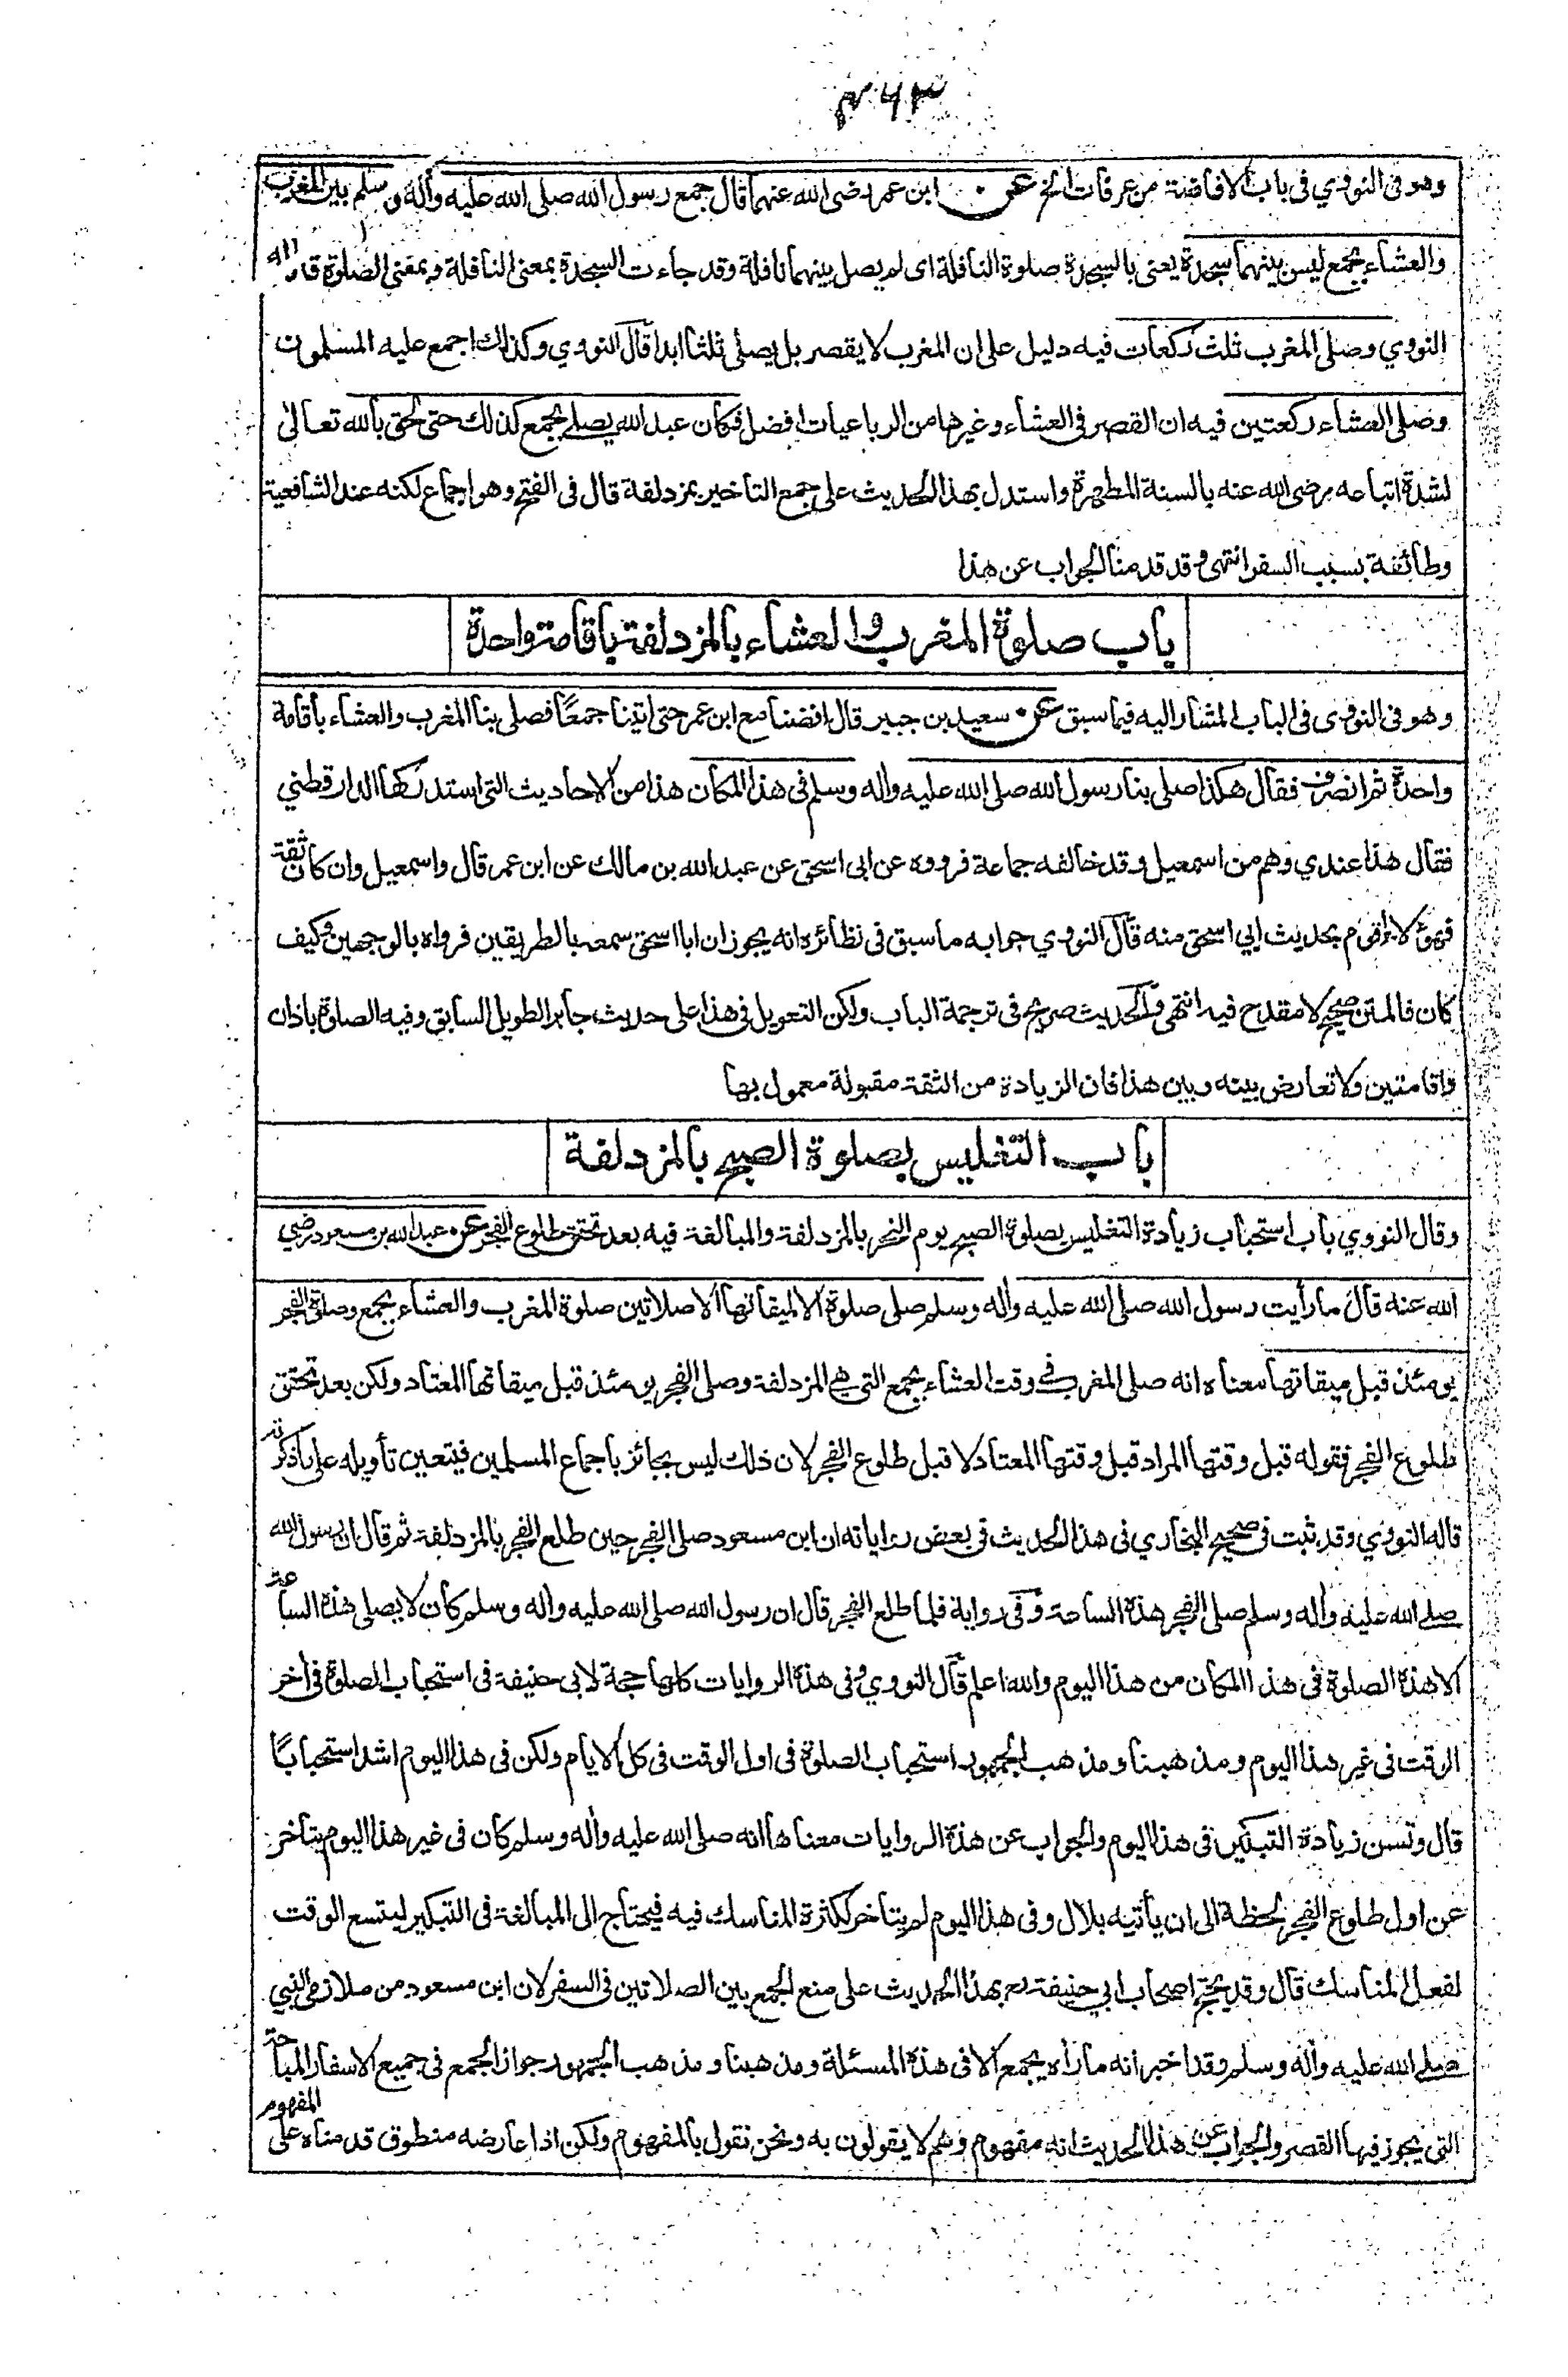 وهو في النووي في باب الافاضة من عرفات الخ عن ابن عمر رضى الله عنهما قال جمع رسول الله صلى الله عليه وأله وسلم بين المغرب
والعشاء بجمع ليس بينهما سجدة يعنى بالسجدة صلوة النافلة اى لم يصل بينهما نافلة وقد جاءت السجدة بمعنى النافلة وبمعنى الصلوة قاله
النووي وصلى المغرب ثلث ركعات فيه دليل على ان المغرب لا يقصر بل يصلى ثلثا ابدا قال النووي وكذلك اجمع عليه المسلمون
وصلى العشاء ركعتين فيه ان القصر في العشاء وغيرها من الرباعيات افضل فكان عبد الله يصلے بجمع كذلك حتى لحق بالله تعالى
لشدة اتباعه رضى الله عنه بالسنة المطهرة واستدل بهذا الحديث على جمع التاخير بمزدلفة قال في الفتح وهو اجماع لكنه عند الشافعية
وطائفة بسبب السفر انتهى وقد قدمنا الجواب عن هذا
باب صلوة المغرب والعشاء بالمزدلفة باقامة واحدة
وهو في النووى في الباب المشار اليه فيما سبق عن سعيد بن جبير قال افضنا مع ابن عمر حتى اتينا جمعًا فصلى بنا المغرب والعشاء بأقامة
واحدة ثم انصرف فقال هكذا صلى بنا رسول الله صلى الله عليه واله وسلم في هذا المكان هذا من الاحاديث التى استدركها الدارقطني
فقال هذا عندي وهم من اسمعيل وقد خالفه جماعة فرووه عن ابى اسحق عن عبد الله بن مالك عن ابن عمر قال واسمعيل وان كان ثقة
فهؤلاء اقوم بحديث ابي اسحق منه قال النووي جوابه ما سبق في نظائره انه يجوز ان ابا اسحق سمعه بالطريقين فرواه بالوجهين وكيف
كان فالمتن صحيح لا مقدح فيه انتهى والحديث صريح في ترجمة الباب ولكن التعويل في هذا على حديث جابر الطويل السابق وفيه الصلوة باذان
واقامتين ولا تعارض بينه وبين هذا فان الزيادة من الثقة مقبولة معمول بها
باب التغليس بصلوة الصبح بالمزدلفة
وقال النووي باب استحباب زيادة التغليس بصلوة الصبح يوم النحر بالمزدلفة والمبالغة فيه بعد تحقق طلوع الفجر عن عبد الله بن مسعود رضي
الله عنه قال ما رأيت رسول الله صلى الله عليه وأله وسلم صلى صلوة الا لميقاتها الا صلاتين صلوة المغرب والعشاء بجمع وصلوة الفجر
يومئذ قبل ميقاتها معناه انه صلى المغرب في وقت العشاء بجمع التى هي المزدلفة وصلى الفجر يومئذ قبل ميقاتها المعتاد ولكن بعد تحقق
طلوع الفجر فقوله قبل وقتها المراد قبل وقتها المعتاد لا قبل طلوع الفجر لان ذلك ليس بجائز باجماع المسلمين فيتعين تأويله على ما ذكرته
قاله النووي وقد ثبت في صحيح البخاري في هذا الحديث في بعض رواياته ان ابن مسعود صلى الفجر حين طلع الفجر بالمزدلفة ثم قال ان رسول الله
صلے الله عليه وأله وسلم صلى الفجر هذة الساعة وفي رواية فلما طلع الفجر قال ان رسول الله صلى الله عليه واله وسلم كان لا يصلى هذة الساعة
الا هذة الصلوة في هذا المكان من هذا اليوم والله اعلم قال النووي وفى هذة الروايات كلها حجة لابى حنيفة في استحباب الصلوة في أخر
الوقت في غير هذا اليوم ومذهبنا ومذهب الجمهور استحباب الصلوة في اول الوقت في كل الايام ولكن في هذا اليوم اشد استحبابًا
قال وتسن زيادة التبكير في هذا اليوم والجواب عن هذة الروايات معناها انه صلى الله عليه وأله وسلم كان في غير هذا اليوم يتأخر
عن اول طلوع الفجر لحظة الى ان يأتيه بلال وفى هذا اليوم لم يتأخر لكثرة المناسك فيه فيحتاج الى المبالغة في التبكير ليتسع الوقت
لفعل المناسك قال وقد يحتج اصحاب ابي حنيفة رح بهذا الحديث على منع الجمع بين الصلاتين في السفر لان ابن مسعود من ملازمى النبي
صلے الله عليه وأله وسلم وقد اخبر انه ما رأه يجمع الا في هذة المسئلة ومذهبنا ومذهب الجمهور جواز الجمع في جميع الاسفار المباحة
التى يجوز فيها القصر والجواب عن هذا الحديث انه مفهوم وهم لا يقولون به ونحن نقول بالمفهوم ولكن اذا عارضه منطوق قدمناه على المفهوم